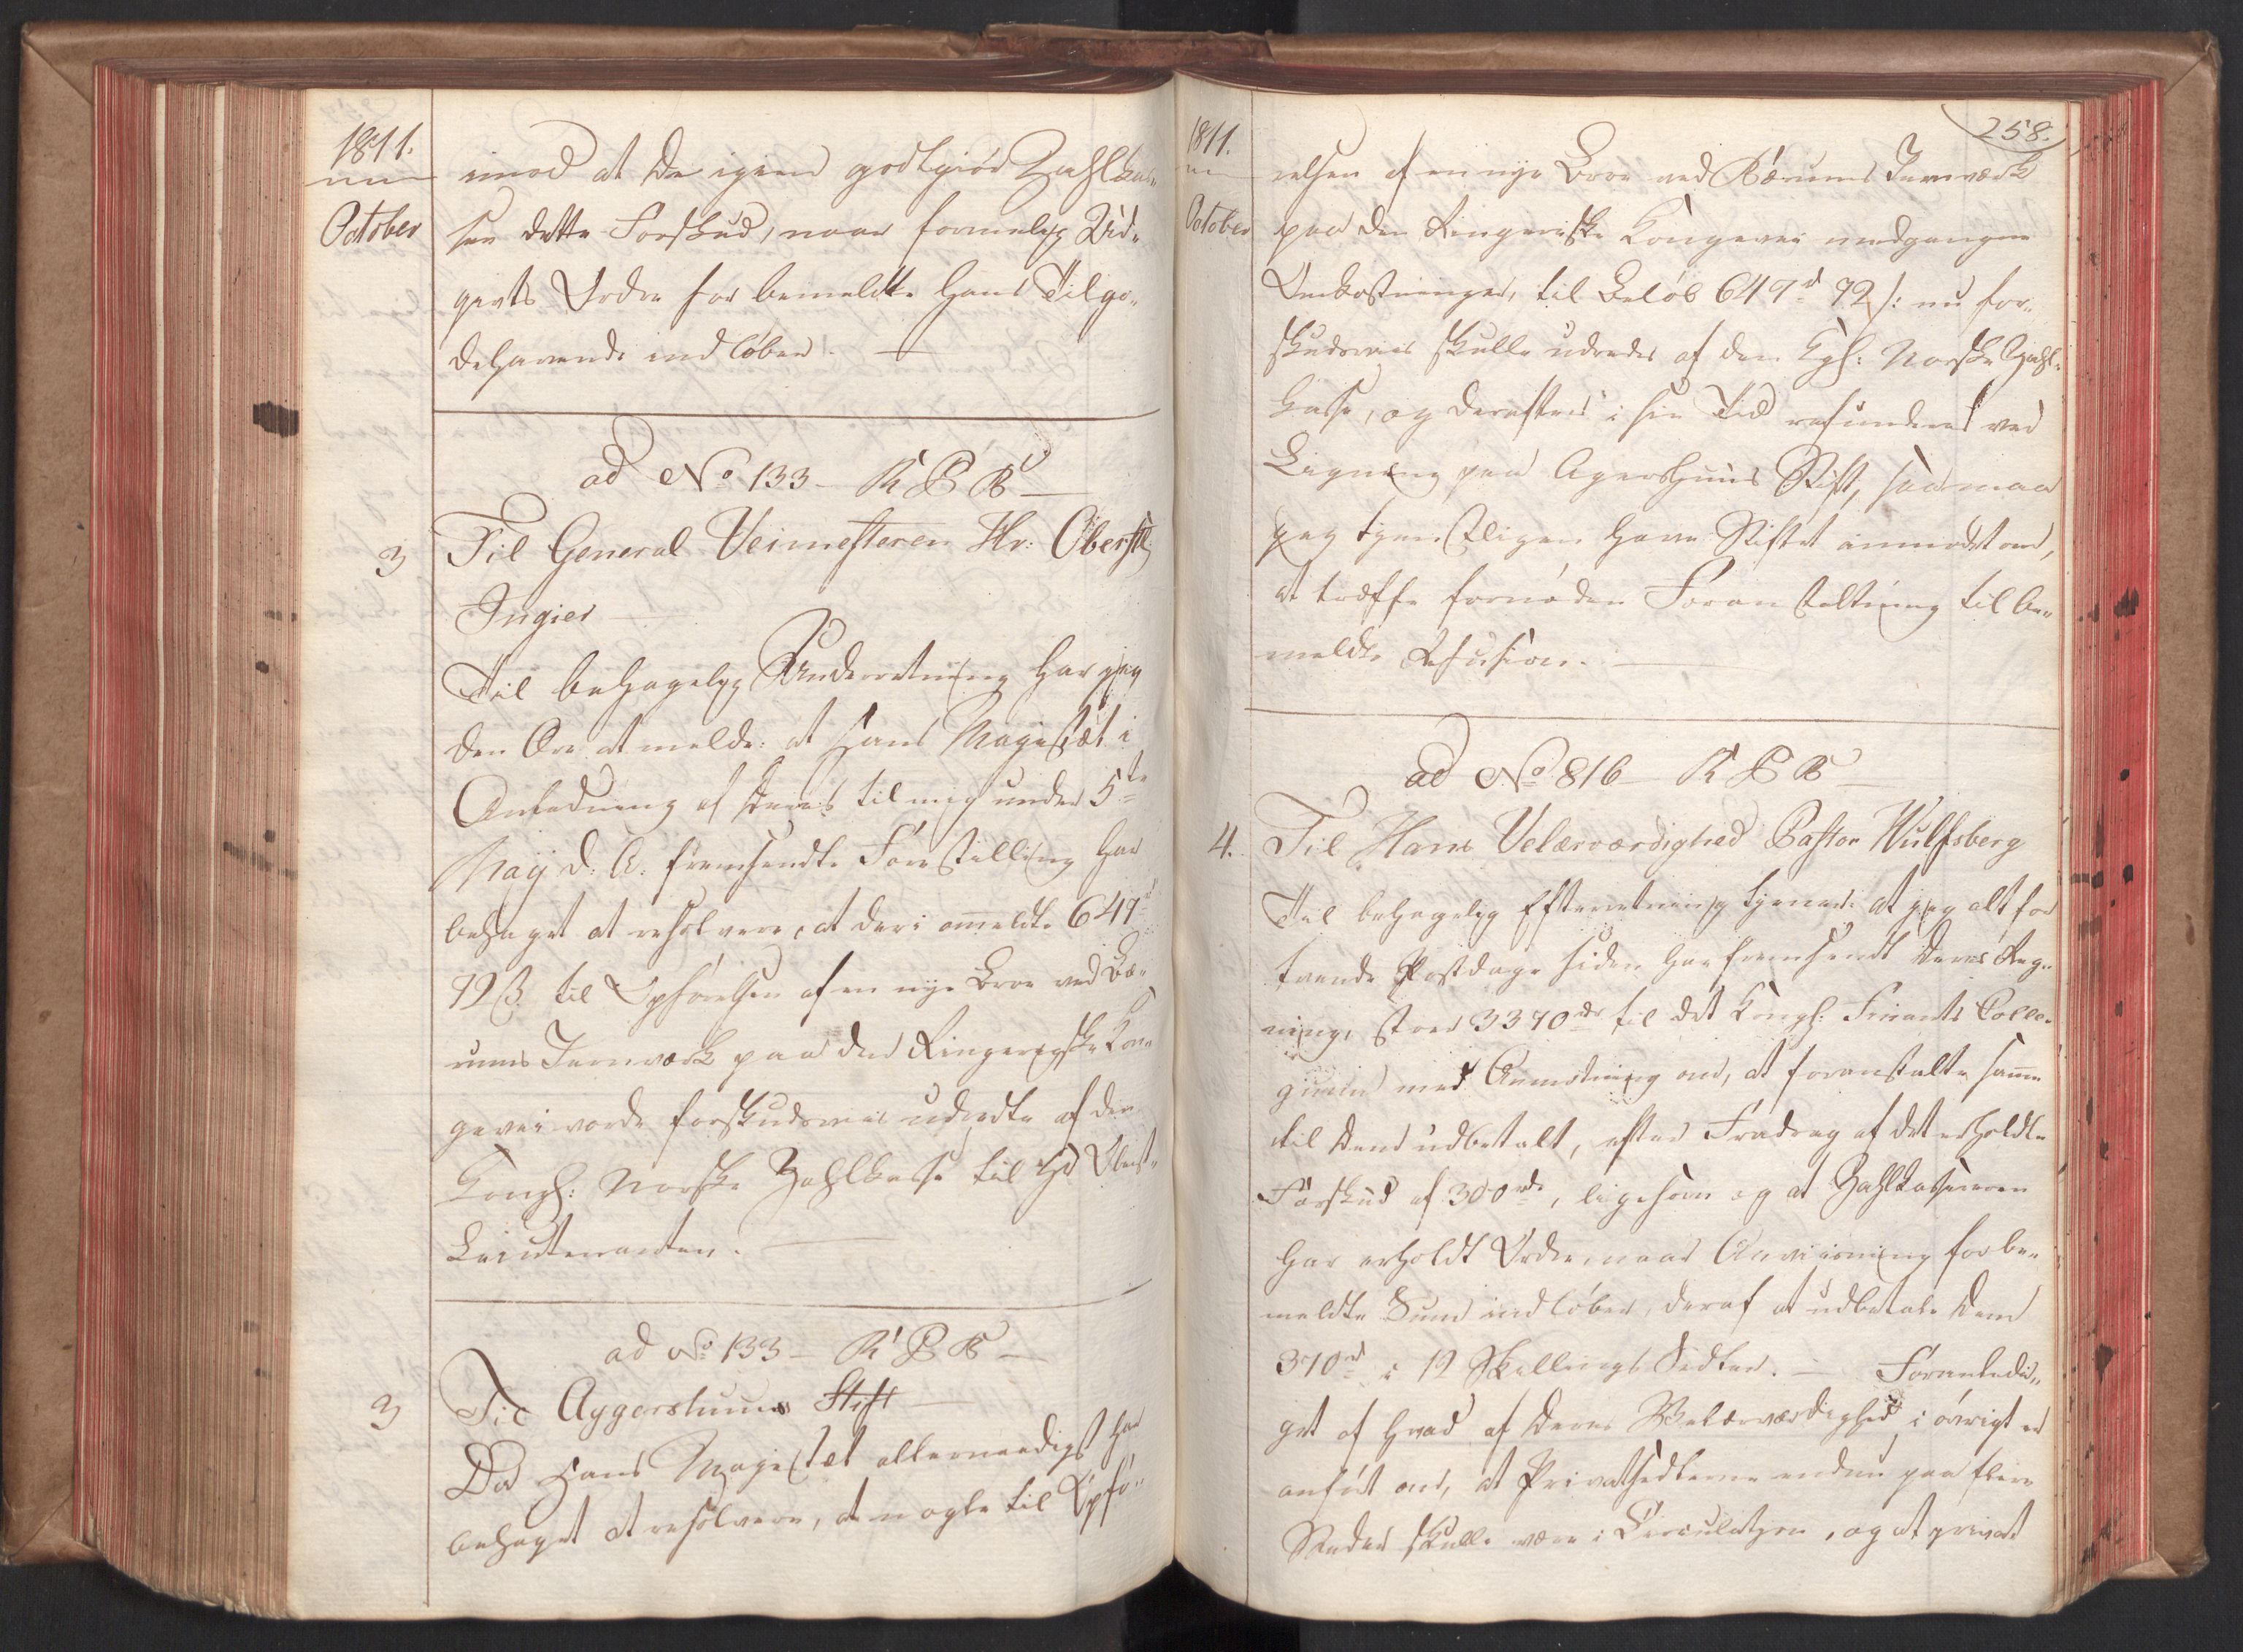 1811.
October
imod at De igien godtgiör Zahlkas„
sen dette Forskud, naar formelig Vid„
grets Ordre for bemeldte hans Tilgo„
dehavende indlöber.
ad No 133 – R P B –
3
Til General Veimesteren Hr: Oberstl:
Ingier
Til behagelig Underretning har jeg
den Ære at melde: at Hans Majestæt i
Anledning af Deres til mig under 5te
Maij d: A: fremsendte Forestilling har
behaget at resolvere, at deri ommeldte 649rd
92 ß til Opförelsen af en nye Broe ved Bæ„
rums Jernværk paa den Ringerigske Kon„
gevei vorde forskudsviis udredte af den
Kongl: Norske Zahlkasse til Hr Oberst„
Lieutenanten.
ad No: 133 – R P B –
3
Til Aggershuus Stift
Da Hans Majestæt allernaadigst har
behaget at resolvere, at nogle til Opfö„
258.
1811.
October
relsen af en nye Broe ved Bærums Jernværk
paa den Ringeriske Kongevei medgangne
Omkostninger, til Belöb 649rd 92 ß: nu for„
skudsviis skulle udredes af den Kgl: Norske Zahl„
kasse, og derefter i sin Tid refunderes ved
Ligning paa Agershuus Stift, saa maa
jeg tjenstligen have Stiftet anmodet om,
at træffe fornöden Foranstaltning til be„
meldte Refusion.
ad No 816 – R P B –
4.
Til Hans Velærværdighed Pastor Wulfsberg
Til behagelig Efterretning tjener: at jeg alt for
tvende Postdage siden har fremsendt Deres Reg„
ning, stor 3370rdr til det Kongl. Finants Colle„
gium med Anmodning om, at foranstalte samme
til Dem udbetalt, efter Fradrag af det erholdte
Forskud af 300rdr, ligesom og at Zahlkassereren
har erholdt Ordre, naar Anviisning for be„
meldte Sum indlöber, deraf at udbetale Dem
370rd i 12 Skillings Sedler. – Foranledi„
get af hvad af Deres Velærværdighed i övrigt er
anfört om, at Privatsedlerne endnu paa flere
Steder skulle være i Circulation, og at privat